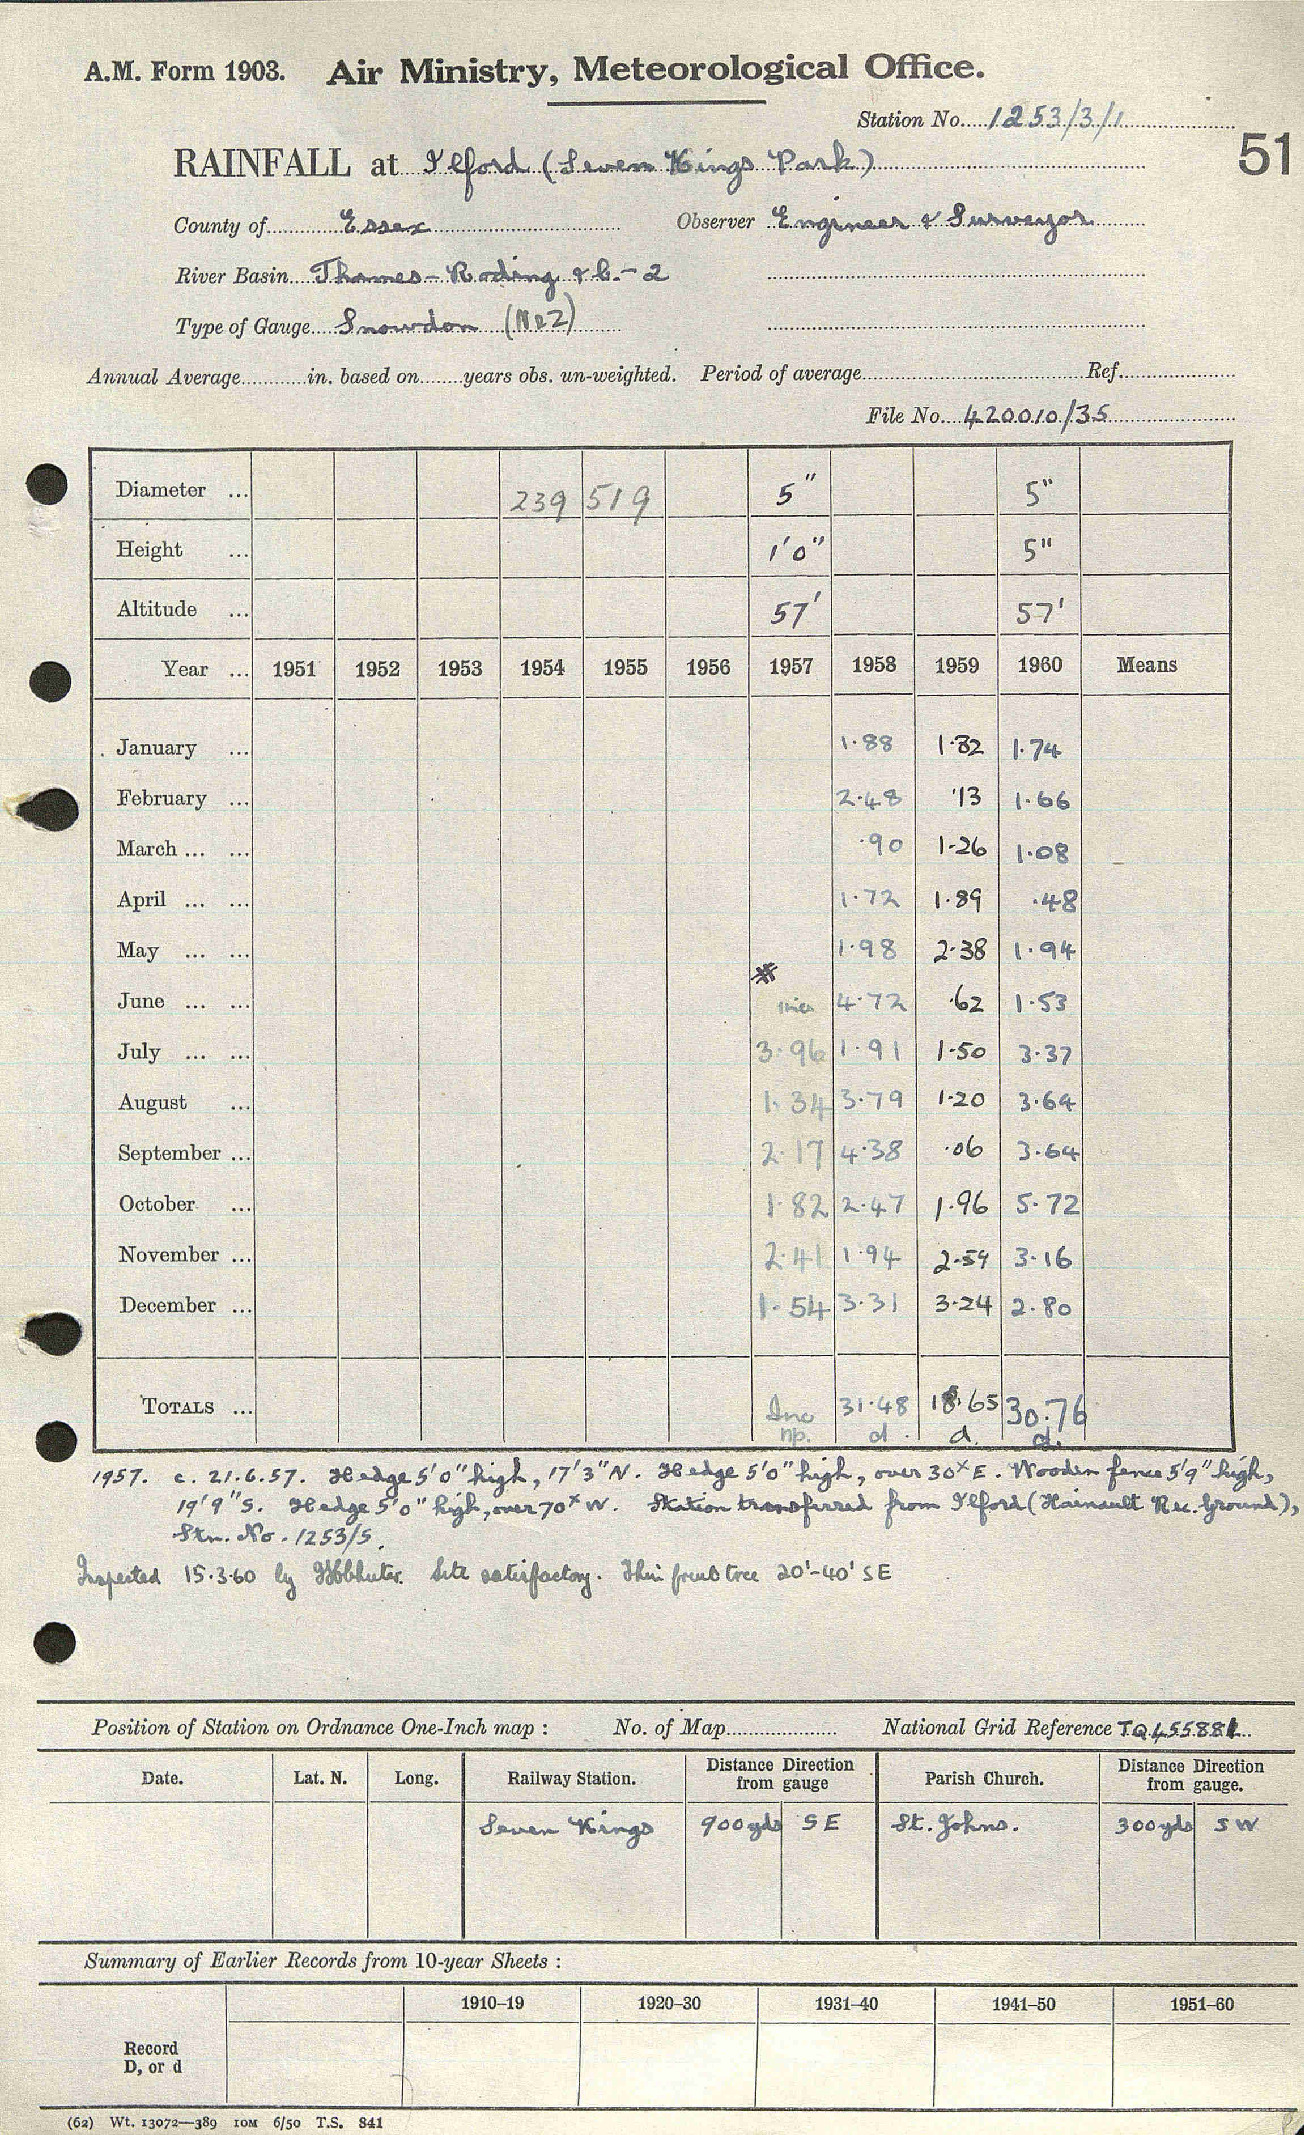 A.M. Form 1903. Air Ministry, Meteorological Office.
Station No. 1253/3/1
51
RAINFALL at Ilford (Seven Kings Park)
County of Essex Observer Engineer & Surveyor
River Basin Thames - Roding & c. - 2
Type of Gauge Snowdon (Mk2)
Annual Average in. based on years obs. un-weighted. Period of average Ref.
File No. 420010/35
Diameter ... 239 519 5" 5"
Height ... 1'0" 5"
Altitude ... 57' 57'
Year ... 1951 1952 1953 1954 1955 1956 1957 1958 1959 1960 Means
January ... 1.88 1.82 1.74
February ... 2.48 .13 1.66
March ... ... .90 1.26 1.08
April ... ... 1.72 1.89 .48
May ... ... 1.98 2.38 1.94
*
June ... ... 4.72 .62 1.53
July ... ... 3.96 1.91 1.50 3.37
August ... 1.34 3.79 1.20 3.64
September ... 2.17 4.38 .06 3.64
October ... 1.82 2.47 1.96 5.72
November ... 2.41 1.94 2.59 3.16
December ... 1.54 3.31 3.24 2.80
TOTALS ... Inc 31.48 18.65 30.76
np. d. d. d.
1957. c. 21.6.57. Hedge 5'0" high, 17'3" N. Hedge 5'0" high, over 30x E. Wooden fence 5'9" high,
19'9" S. Hedge 5'0" high, over 70x W. Station transferred from Ilford (Hainault Rec. Ground),
Stn. No. 1253/5.
Inspected 15.3.60 by Site satisfactory. Thin fruit tree 20'-40' SE
Position of Station on Ordnance One-Inch map : No. of Map National Grid Reference TQ 455881
Date. Lat. N. Long. Railway Station. Distance from gauge Direction Parish Church. Distance from gauge. Direction
Seven Kings 900yds SE St. Johns. 300yds SW
Summary of Earlier Records from 10-year Sheets :
1910–19 1920–30 1931–40 1941–50 1951–60
Record
D, or d
(62) Wt. 13072—389 10M 6/50 T.S. 841